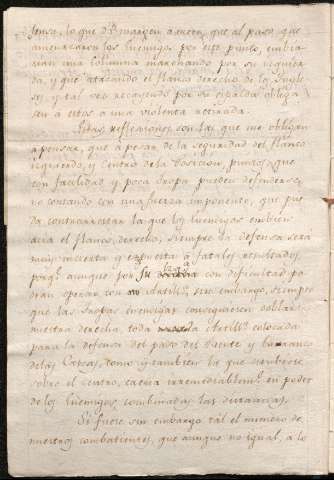 fensa, lo que da margen a creer, que al paso que
amenazaran los Enemigos por este punto, embia-
rian una columna marchando por su izquier-
da, y que atacando el flanco derecho de los Ingle-
ses, y tal vez recayendo por su espalda obliga-
sen a estos a una violenta retirada.
Estas reflexiones son las que me obligan
a pensar, que a pesar de la seguridad del flanco
izquierdo, y centro de la Posicion, puntos que
con facilidad, y poca tropa pueden defenderse,
no contando con una fuerza imponente, que pue-
da contrarrestar la que los Enemigos embien
acia el flanco derecho, siempre la defensa será
muy incierta y expuesta a fatales resultados,
porq.e aunque por su con dificultad po-
dran operar con Artill.a, sin embargo, siempre
que las tropas enemigas consiguiesen doblar
nuestra derecha, toda la Artill.a colocada
para la defensa del paso del Puente y barranco
de las Cabras, como y tambien la que tubiese
sobre el centro, caeria irremediablem.te en poder
de los Enemigos, combinadas las distancias.
Si fuese sin embargo tal el numero de
nuestros combatientes, que aunque no igual, a lo